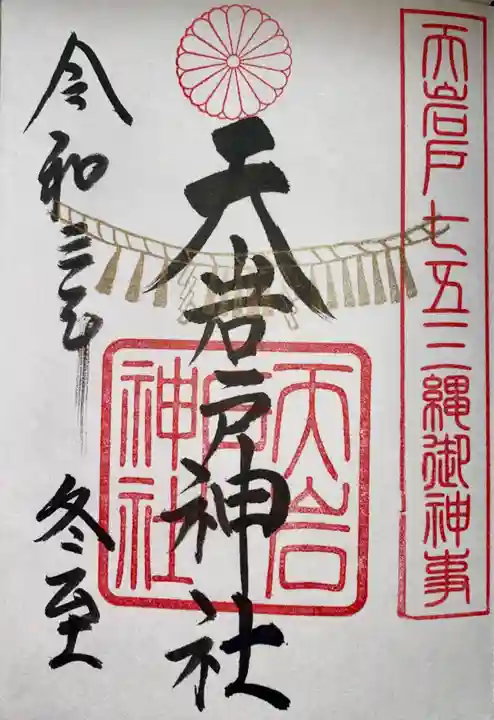 天岩戸七五三縄御神事
天岩戸神社
天岩
戸
神社
令和三年
冬至